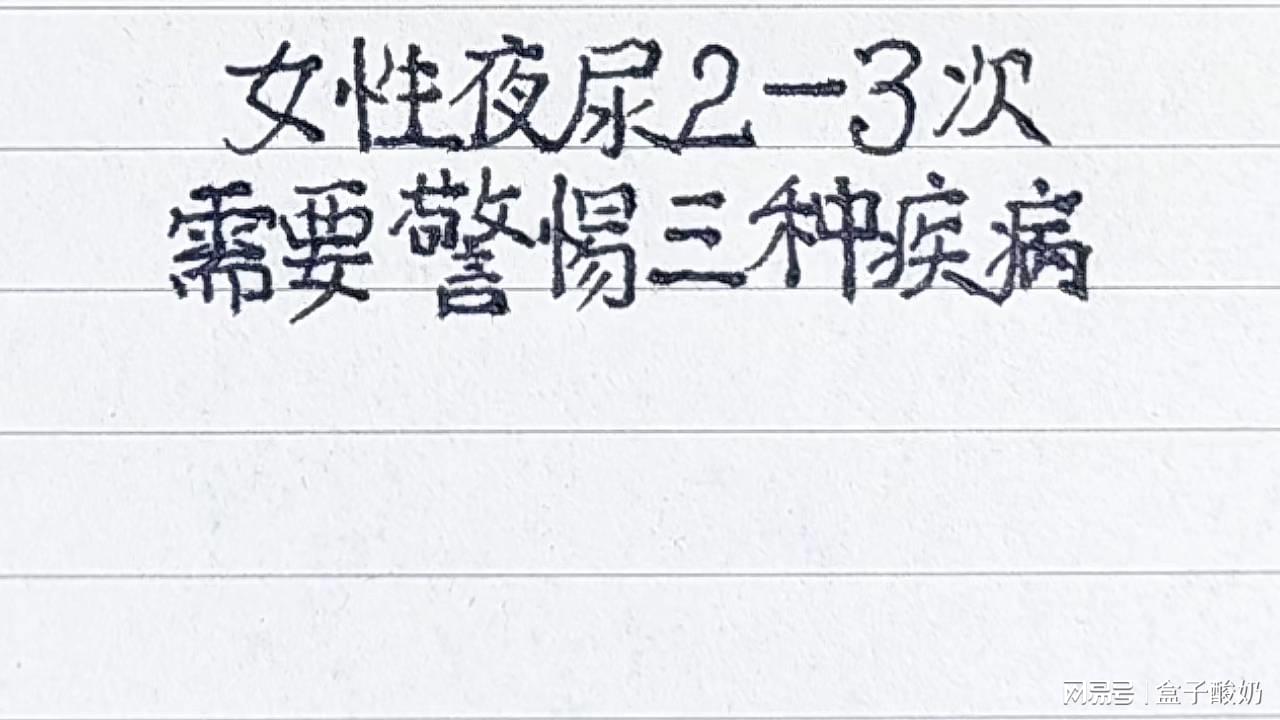 女性夜尿2-3次
需要警惕三种疾病
网易号 | 盒子酸奶